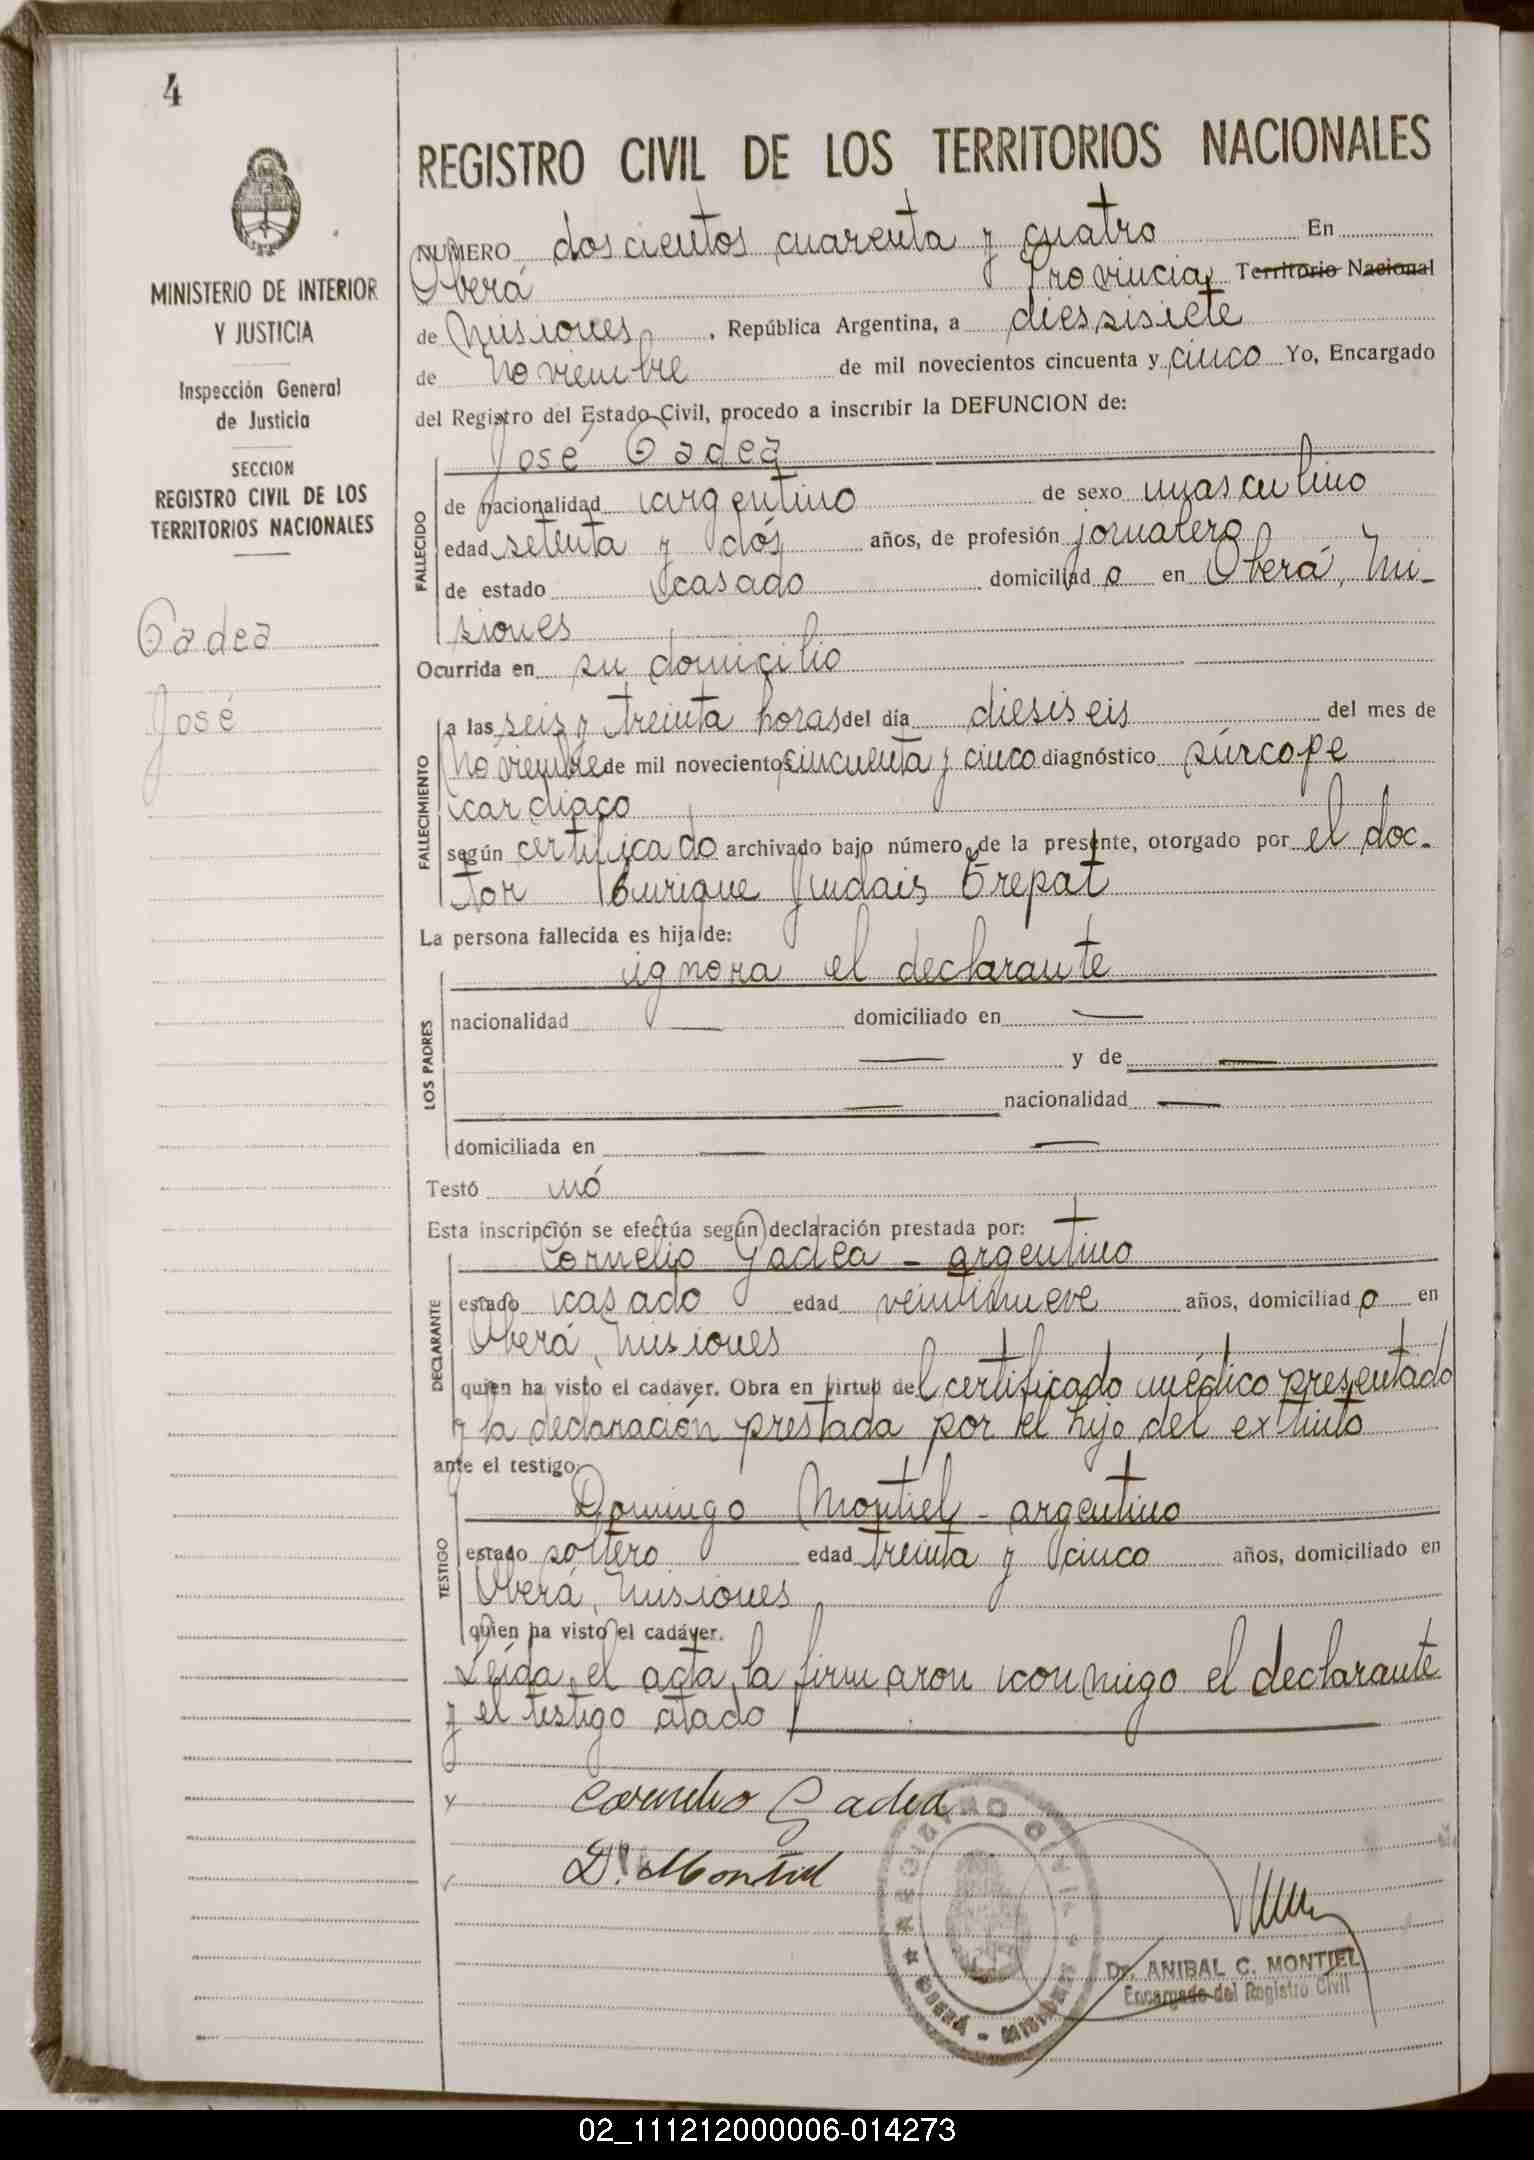 4
MINISTERIO DE INTERIOR
Y JUSTICIA
Inspección General
de Justicia
SECCION
REGISTRO CIVIL DE LOS
TERRITORIOS NACIONALES
Gadea
José
REGISTRO CIVIL DE LOS TERRITORIOS NACIONALES
NUMERO doscientos cuarenta y cuatro En
Oberá Provincia Territorio Nacional
de Misiones, República Argentina, a diessisiete
de Noviembre de mil novecientos cincuenta y cinco Yo, Encargado
del Registro del Estado Civil, procedo a inscribir la DEFUNCION de:
José Gadea
FALLECIDO
de nacionalidad argentino de sexo masculino
edad setenta y dós años, de profesión jornalero
de estado casado domiciliado en Oberá, Mi-
siones
Ocurrida en su domicilio
FALLECIMIENTO
a las seis y treinta horas del día diesiseis del mes de
Noviembre de mil novecientos cincuenta y cinco diagnóstico súrcope
cardiaco
según certificado archivado bajo número de la presente, otorgado por el doc-
tor Enrique Judais Trepat
La persona fallecida es hija de:
LOS PADRES
ignora el declarante
nacionalidad — domiciliado en —
— y de —
— nacionalidad —
domiciliada en — —
Testó nó
Esta inscripción se efectúa según declaración prestada por:
DECLARANTE
Cornelio Gadea - argentino
estado casado edad veintinueve años, domiciliado en
Oberá, Misiones
quien ha visto el cadáver. Obra en virtud del certificado médico presentado
y la declaración prestada por el hijo del extinto
ante el testigo:
TESTIGO
Domingo Montiel - argentino
estado soltero edad treinta y cinco años, domiciliado en
Oberá, Misiones
quien ha visto el cadáver.
Leída el acta, la firmaron conmigo el declarante
y el testigo atado
Cornelio Gadea
D. Montiel
REGISTRO CIVIL
OBERÁ - MISIONES
Dr. ANIBAL C. MONTIEL
Encargado del Registro Civil
02_111212000006-014273